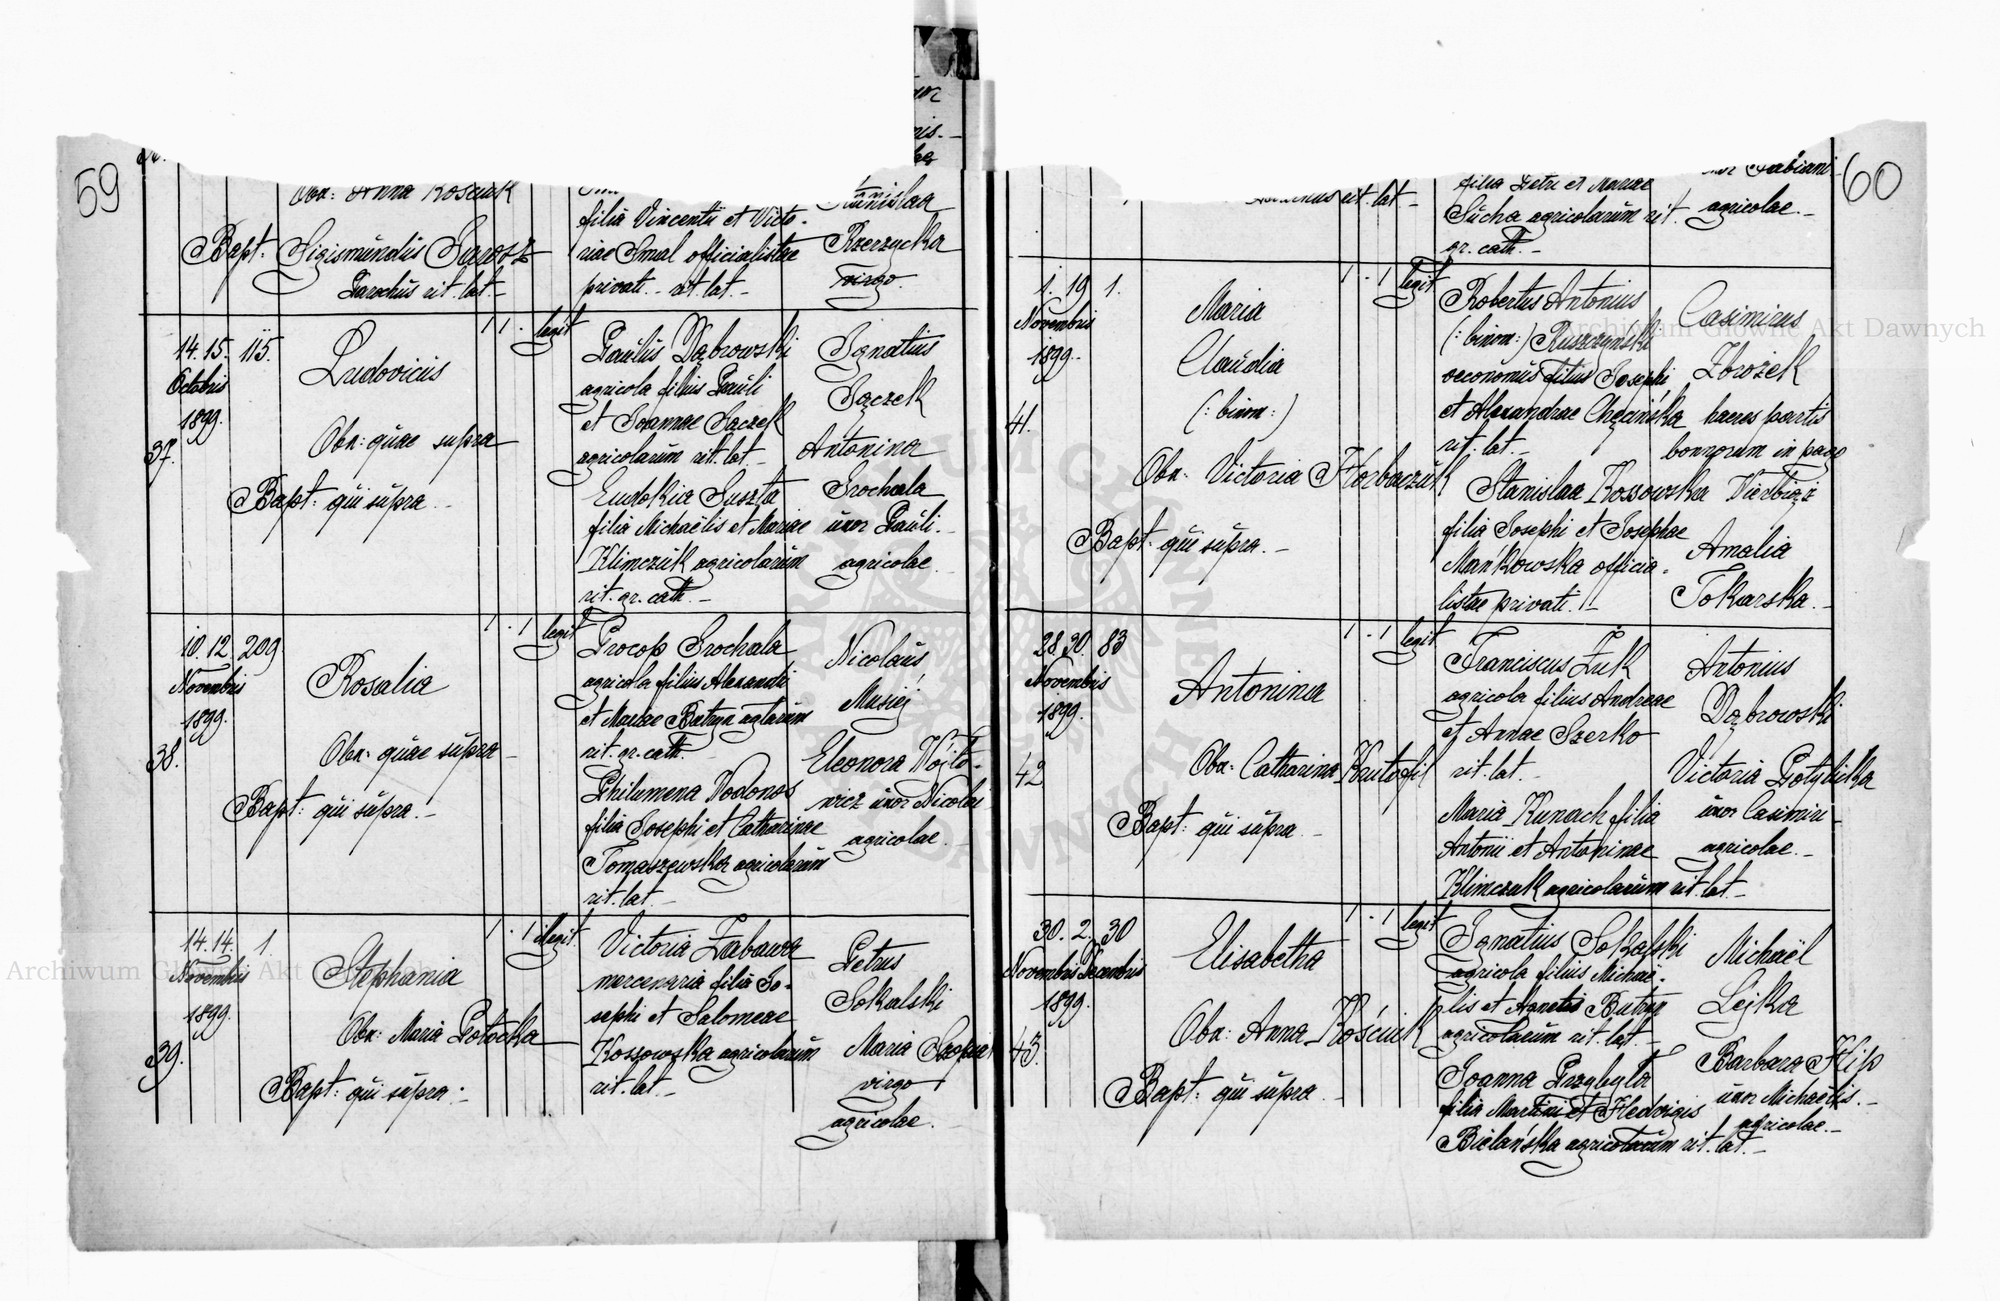 59
Obn: Anna Kościuk
filia Vincentii et Victo-
Stanislaa
Bapt: Sigismundus Jarosz
riae Smal officialistae
Rzerzycka
Parochus rit. lat. –
privati. – rit. lat. –
virgo.
14. 15. 115.
Octobris
1899.
37.
Ludovicus
Obn: quae supra
Bapt: qui supra. –
1 1. legit
Paulus Dąbrowski
agricola filius Pauli
et Joannae Jaczek
agricolarum rit. lat. –
Eudokia Suszta
filia Michaëlis et Mariae
Klimczuk agricolarum
rit. gr. cath. –
Ignatius
Jączek
Antonina
Srochala
uxor Pauli. –
agricolae.
10. 12. 209
Novembris
1899.
38.
Rosalia
Obn: quae supra –
Bapt: qui supra. –
1 - 1 legit
Procop Srochala
agricola filius Alexandri
et Mariae Butryn agolarum
rit. gr. cath.
Philumena Wodonos
filia Josephi et Catharinae
Tomaszewska agricolarum
rit. lat. –
Nicolaus
Musiej
Eleonora Wójto-
wicz uxor Nicolai
agricolae.
14. 14. 1
Novembris
1899.
39.
Stephania
Obn: Maria Potocka
Bapt: qui supra. –
1 - 1 illegit.
Victoria Zabawa
mercenaria filia Jo-
sephi et Salomeae
Kossowska agricolarum
rit. lat. –
Petrus
Sokalski
Maria
virgo
agricolae.
60
rit. lat. –
filia Petri et Mariae
Sucha agricolarum rit.
gr. cath. –
uxor Fabiani
agricolae. –
1. 19. 1.
Novembris
1899.
41.
Maria
Claudia
(: binom :)
Obn: Victoria Horbaczuk
Bapt: qui supra. –
1 - 1 legit
Robertus Antonius
(: binom :) Ruszczyński
oeconomus filius Josephi
et Alexandrae Chęcińska
rit. lat. –
Stanislaa Kossowska
filia Josephi et Josephae
Mańkowska officia-
listae privati. –
Casimirus
Zbrożek
haeres partis
bonnorum in pago
Wierbiąż
Amalia
Tokarska. –
28. 30. 83
Novembris
1899.
42
Antonina
Obn: Catharina Krutofil
Bapt: qui supra. –
1 - 1 legit
Franciscus Żuk
agricola filius Andreae
et Annae Szerko
rit. lat. –
Maria Kunach filia
Antonii et Antoninae
Klimczuk agricolarum rit. lat –
Antonius
Dąbrowski
Victoria
uxor Casimiri –
agricolae. –
30. 2. 30
Novembris Decembris
1899.
43.
Elisabetha
Obn: Anna Kościuk
Bapt: qui supra.
1 - 1 legit
Ignatius Sokalski
agricola filius Michaë-
lis et Agnetis Butryn
agricolarum rit. lat. –
Joanna Przybyła
filia Martini et Hedvigis
Bielańska agricolarum rit. lat. –
Michaël
Lejka
Barbara Filip
uxor Michaëlis. –
agricolae. –
Archiwum Główne Akt Dawnych
Archiwum Główne Akt Dawnych
ARCHIWUM GŁÓWNE AKT DAWNYCH